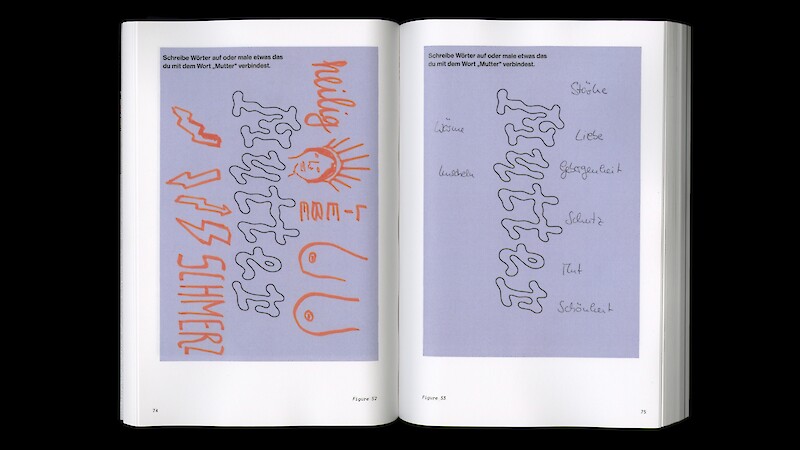 Schreibe Wörter auf oder male etwas das
du mit dem Wort „Mutter“ verbindest.
heilig
Mutter
LIEBE
SCHMERZ
Figure 52
74
Schreibe Wörter auf oder male etwas das
du mit dem Wort „Mutter“ verbindest.
Stärke
Wärme
Liebe
kuscheln
Geborgenheit
Mutter
Schutz
Mut
Schönheit
Figure 53
75